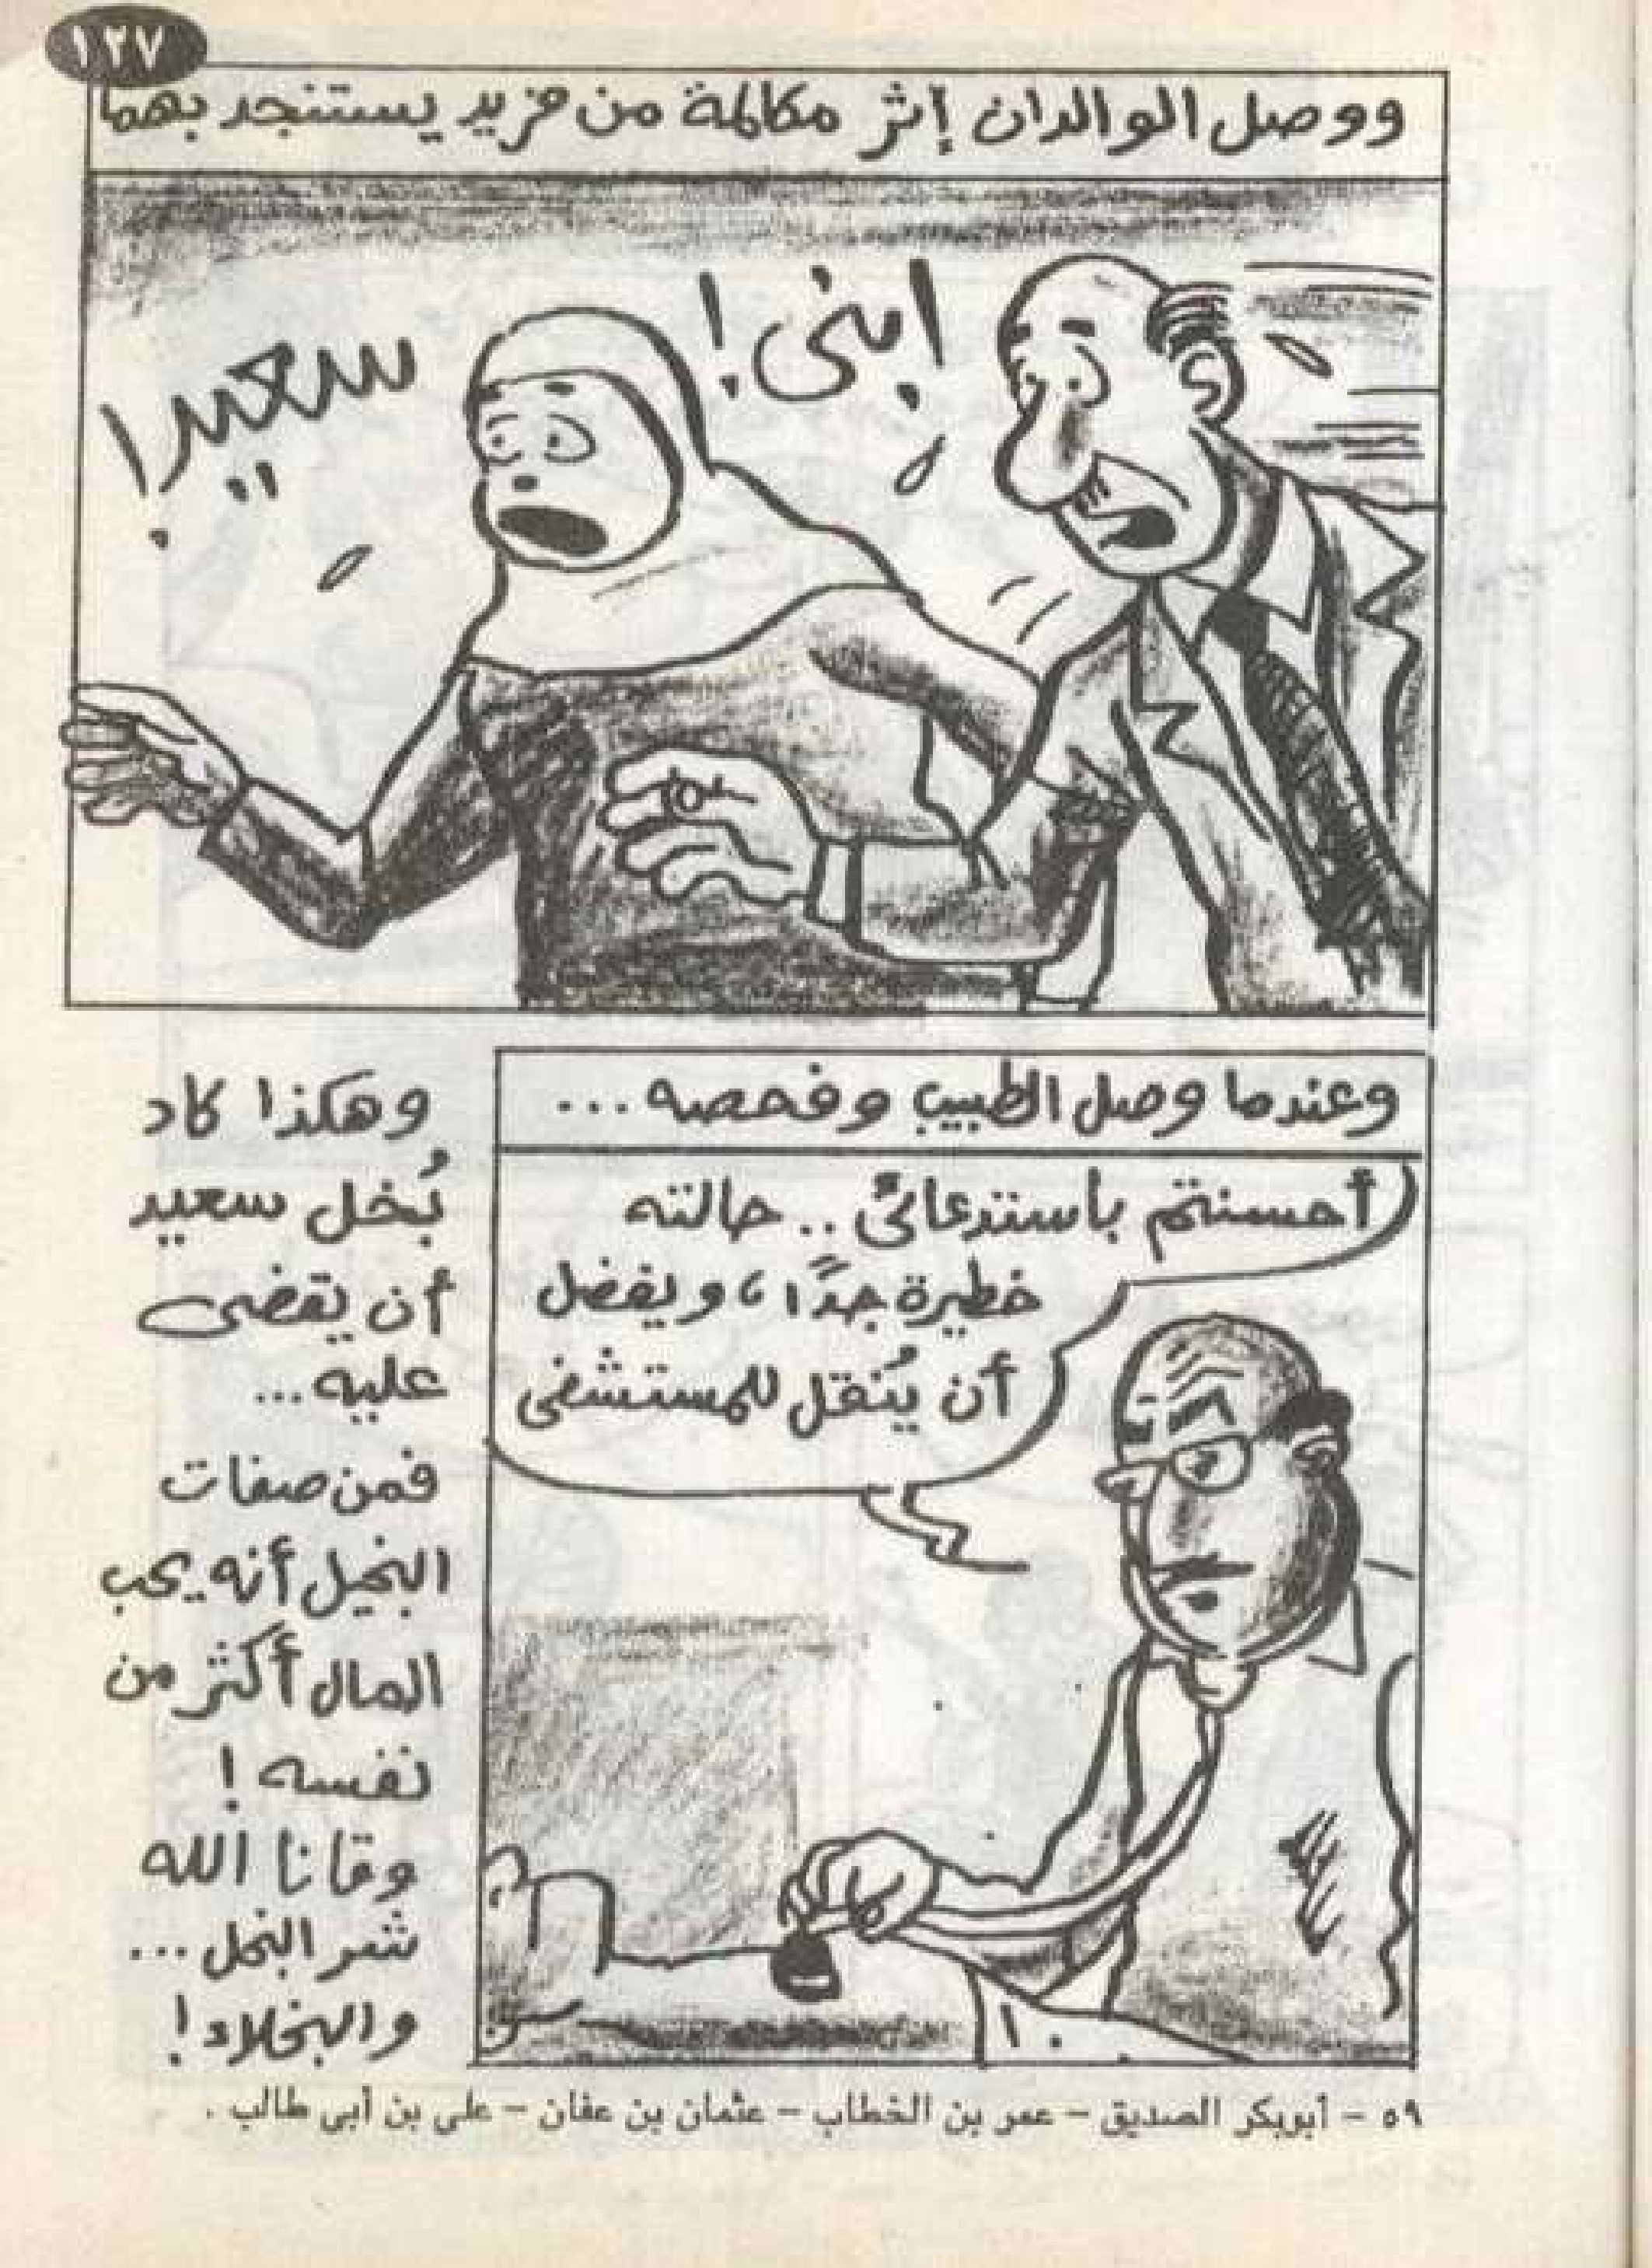 ١٢٧
ووصل الوالدان إثر مكالمة من مزيد يستنجد بهما
ابنى!
سعيد!
وعندما وصل الطبيب وفحصه...
أحسنتم باستدعائى.. حالته
خطيرة جدًا، ويفضل
أن يُنقل للمستشفى
وهكذا كاد
بُخل سعيد
أن يقضى
عليه...
فمن صفات
البخيل أنه يحب
المال أكثر من
نفسه!
وقانا الله
شر البخل...
والبخلاء!
٥٩ - أبوبكر الصديق - عمر بن الخطاب - عثمان بن عفان - على بن أبى طالب .